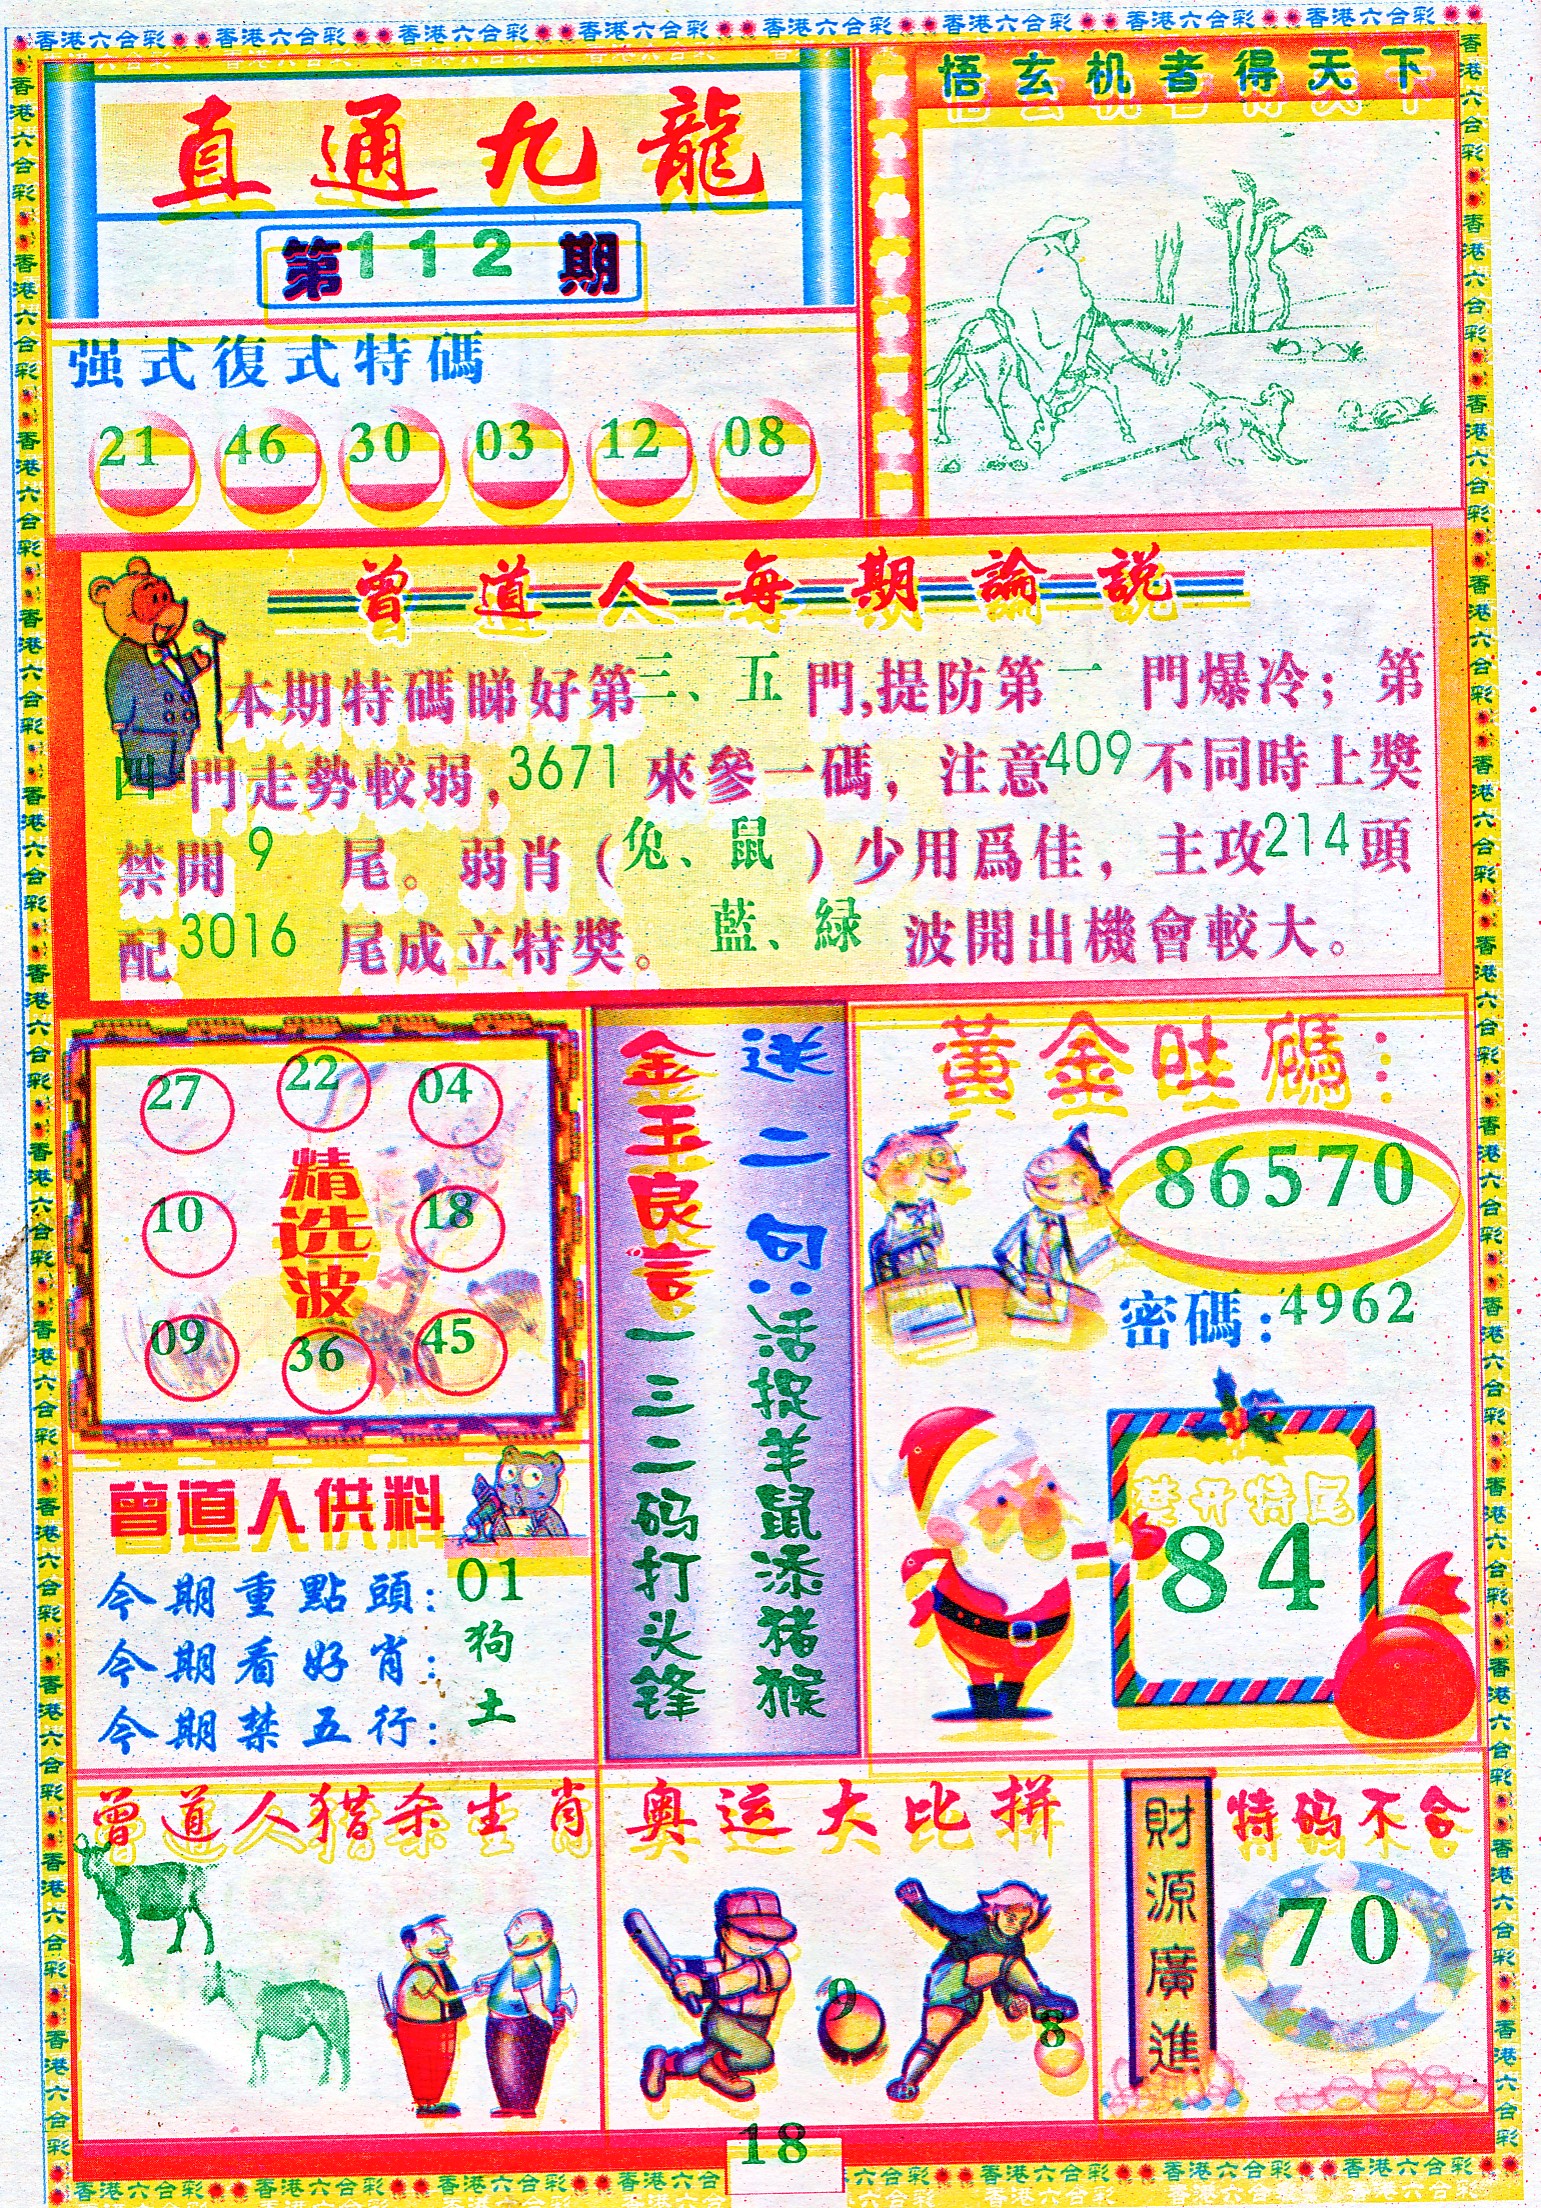 香港六合彩 香港六合彩 香港六合彩 香港六合彩 香港六合彩 香港六合彩 香港六合彩 香港六合彩
直通九龍
第112期
悟玄机者得天下
强式復式特碼
21 46 30 03 12 08
曾道人每期論説
本期特碼睇好第三、五門,提防第一門爆冷；第
四門走勢較弱,3671來參一碼，注意409不同時上獎
禁開9尾。弱肖(兔、鼠)少用爲佳，主攻214頭
配3016尾成立特獎。藍、緑波開出機會較大。
27 22 04
10 精选波 18
09 36 45
曾道人供料
今期重點頭：01
今期看好肖：狗
今期禁五行：土
送二句：活捉羊鼠添猪猴
金玉良言一三二码打头锋
黃金旺碼：
86570
密碼：4962
禁开特尾
84
曾道人猎杀生肖
奥运大比拼
9
8
財源廣進
特码不含
70
18
香港六合彩 香港六合彩 香港六合彩 香港六合 六合彩 香港六合彩 香港六合彩 香港六合彩